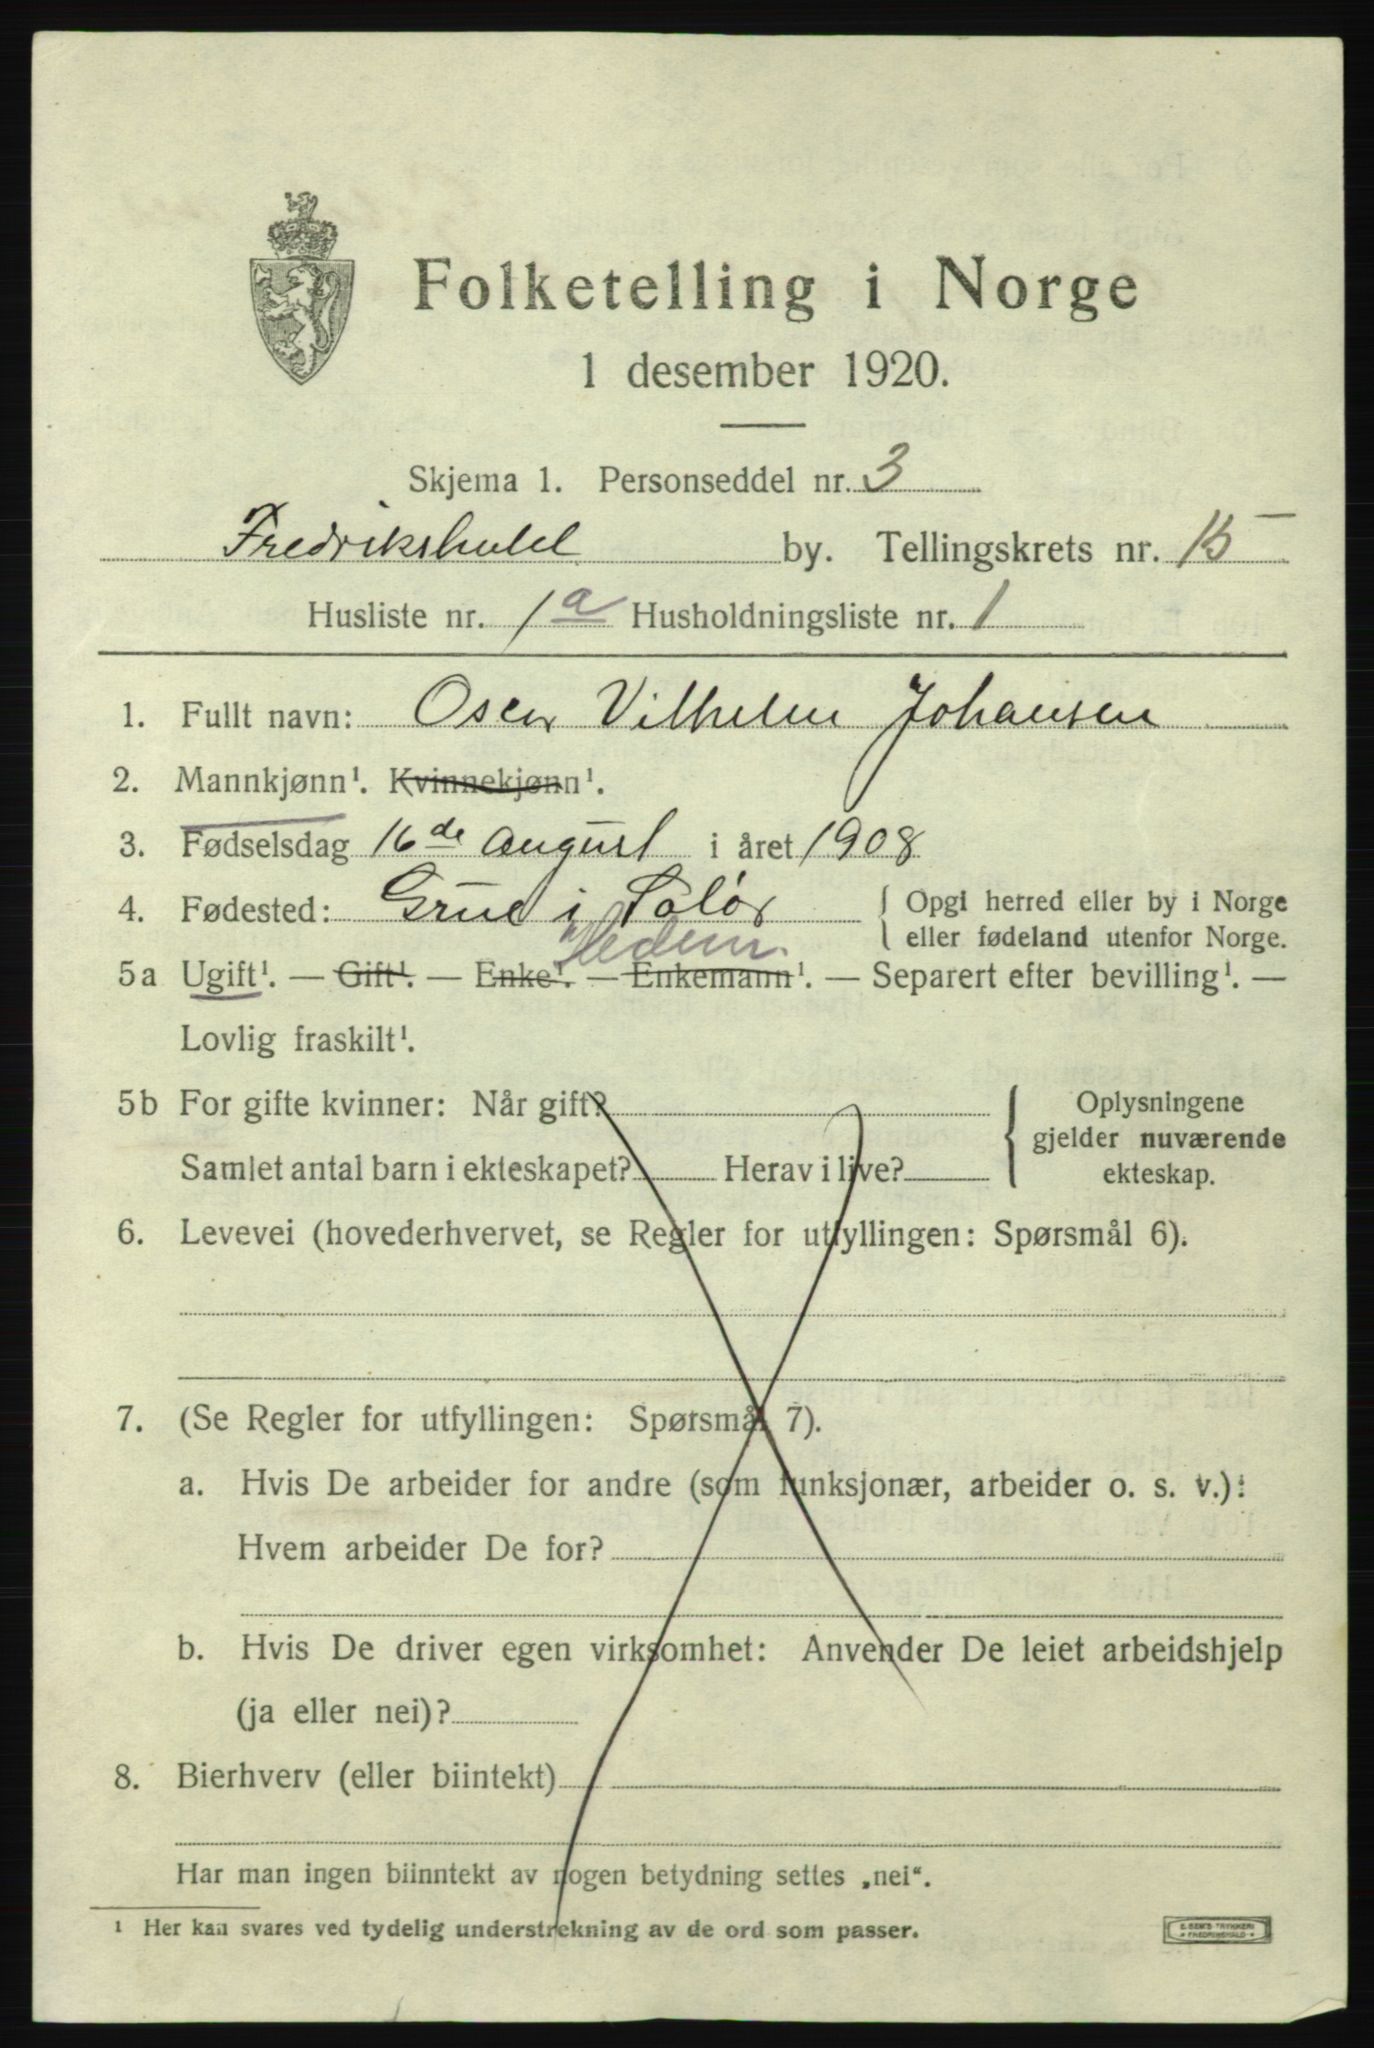 Folketelling i Norge
1 desember 1920.
Skjema 1. Personseddel nr. 3
Fredrikshald by. Tellingskrets nr. 15
Husliste nr. 1a Husholdningsliste nr. 1
1. Fullt navn: Oscar Vilhelm Johansen
2. Mannkjønn¹. Kvinnekjønn¹.
3. Fødselsdag 16de august i året 1908
4. Fødested: Grue i Solør { Opgi herred eller by i Norge
eller fødeland utenfor Norge.
Hedem.
5a Ugift¹. — Gift¹. — Enke¹. — Enkemann¹. — Separert efter bevilling¹. —
Lovlig fraskilt¹.
5b For gifte kvinner: Når gift? { Oplysningene
gjelder nuværende
Samlet antal barn i ekteskapet? Herav i live? ekteskap.
6. Levevei (hovederhvervet, se Regler for utfyllingen: Spørsmål 6).
7. (Se Regler for utfyllingen: Spørsmål 7).
a. Hvis De arbeider for andre (som funksjonær, arbeider o. s. v.):
Hvem arbeider De for?
b. Hvis De driver egen virksomhet: Anvender De leiet arbeidshjelp
(ja eller nei)?
8. Bierhverv (eller biintekt)
Har man ingen biinntekt av nogen betydning settes „nei“.
¹ Her kan svares ved tydelig understrekning av de ord som passer.
E. SEM'S TRYKKERI
FREDRIKSHALD